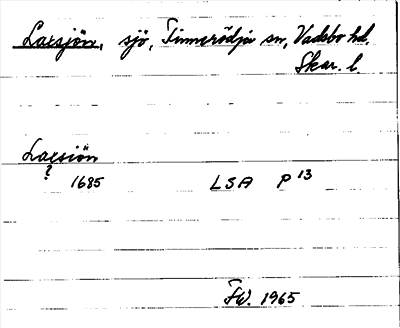 Laxsjön, sjö, Tinnerödja sn, Vadsbo hd,
Skar. l.
Laxsiön
?
1685 LSA P 13
FW. 1965